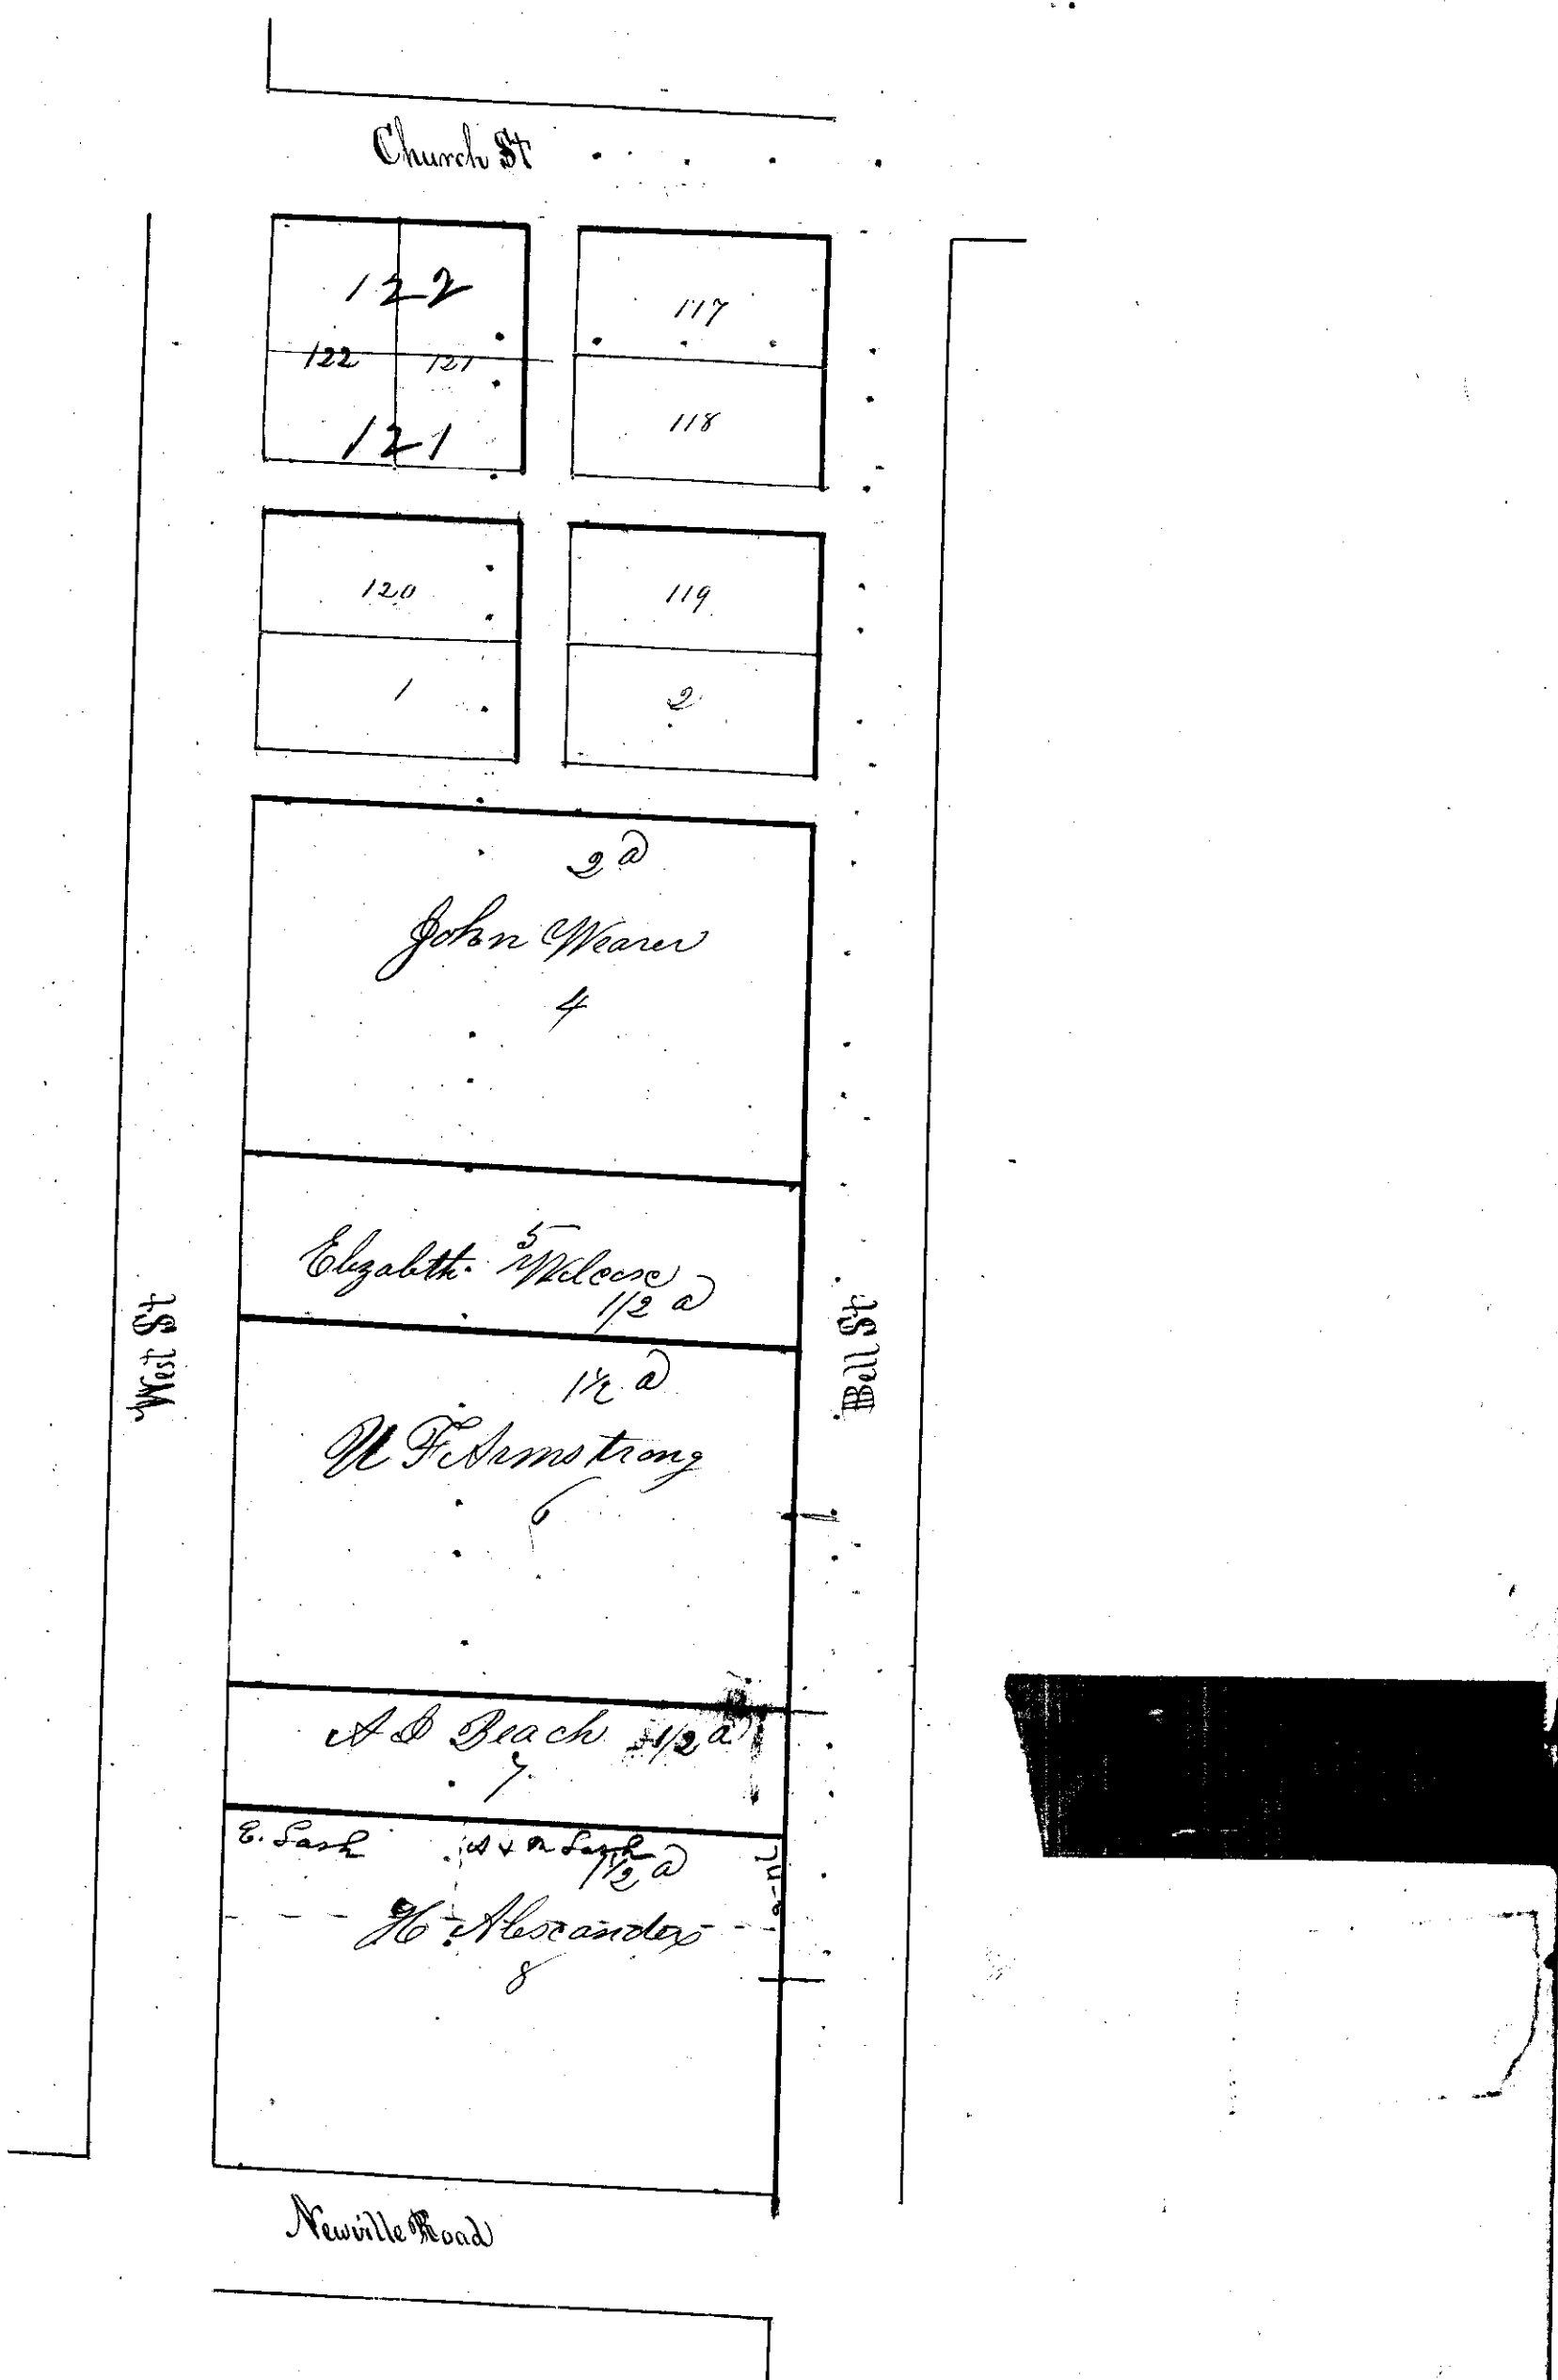 Church St
122
117
122 121
121
118
120
119
1
2
2 a
John Weaver
4
5
Elizabeth
1/2 a
West St
Bell St
1 1/2 a
F Armstrong
6
A D Beach 1/2 a
7
E. Lash
A & M Lash
1 1/2 a
H. Alexander
8
Newville Road